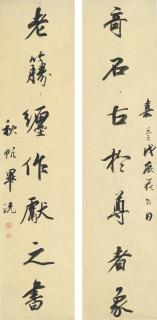 奇石古於尊者象
嘉戊辰花日
老籐纏作獻之書
秋帆畢沅